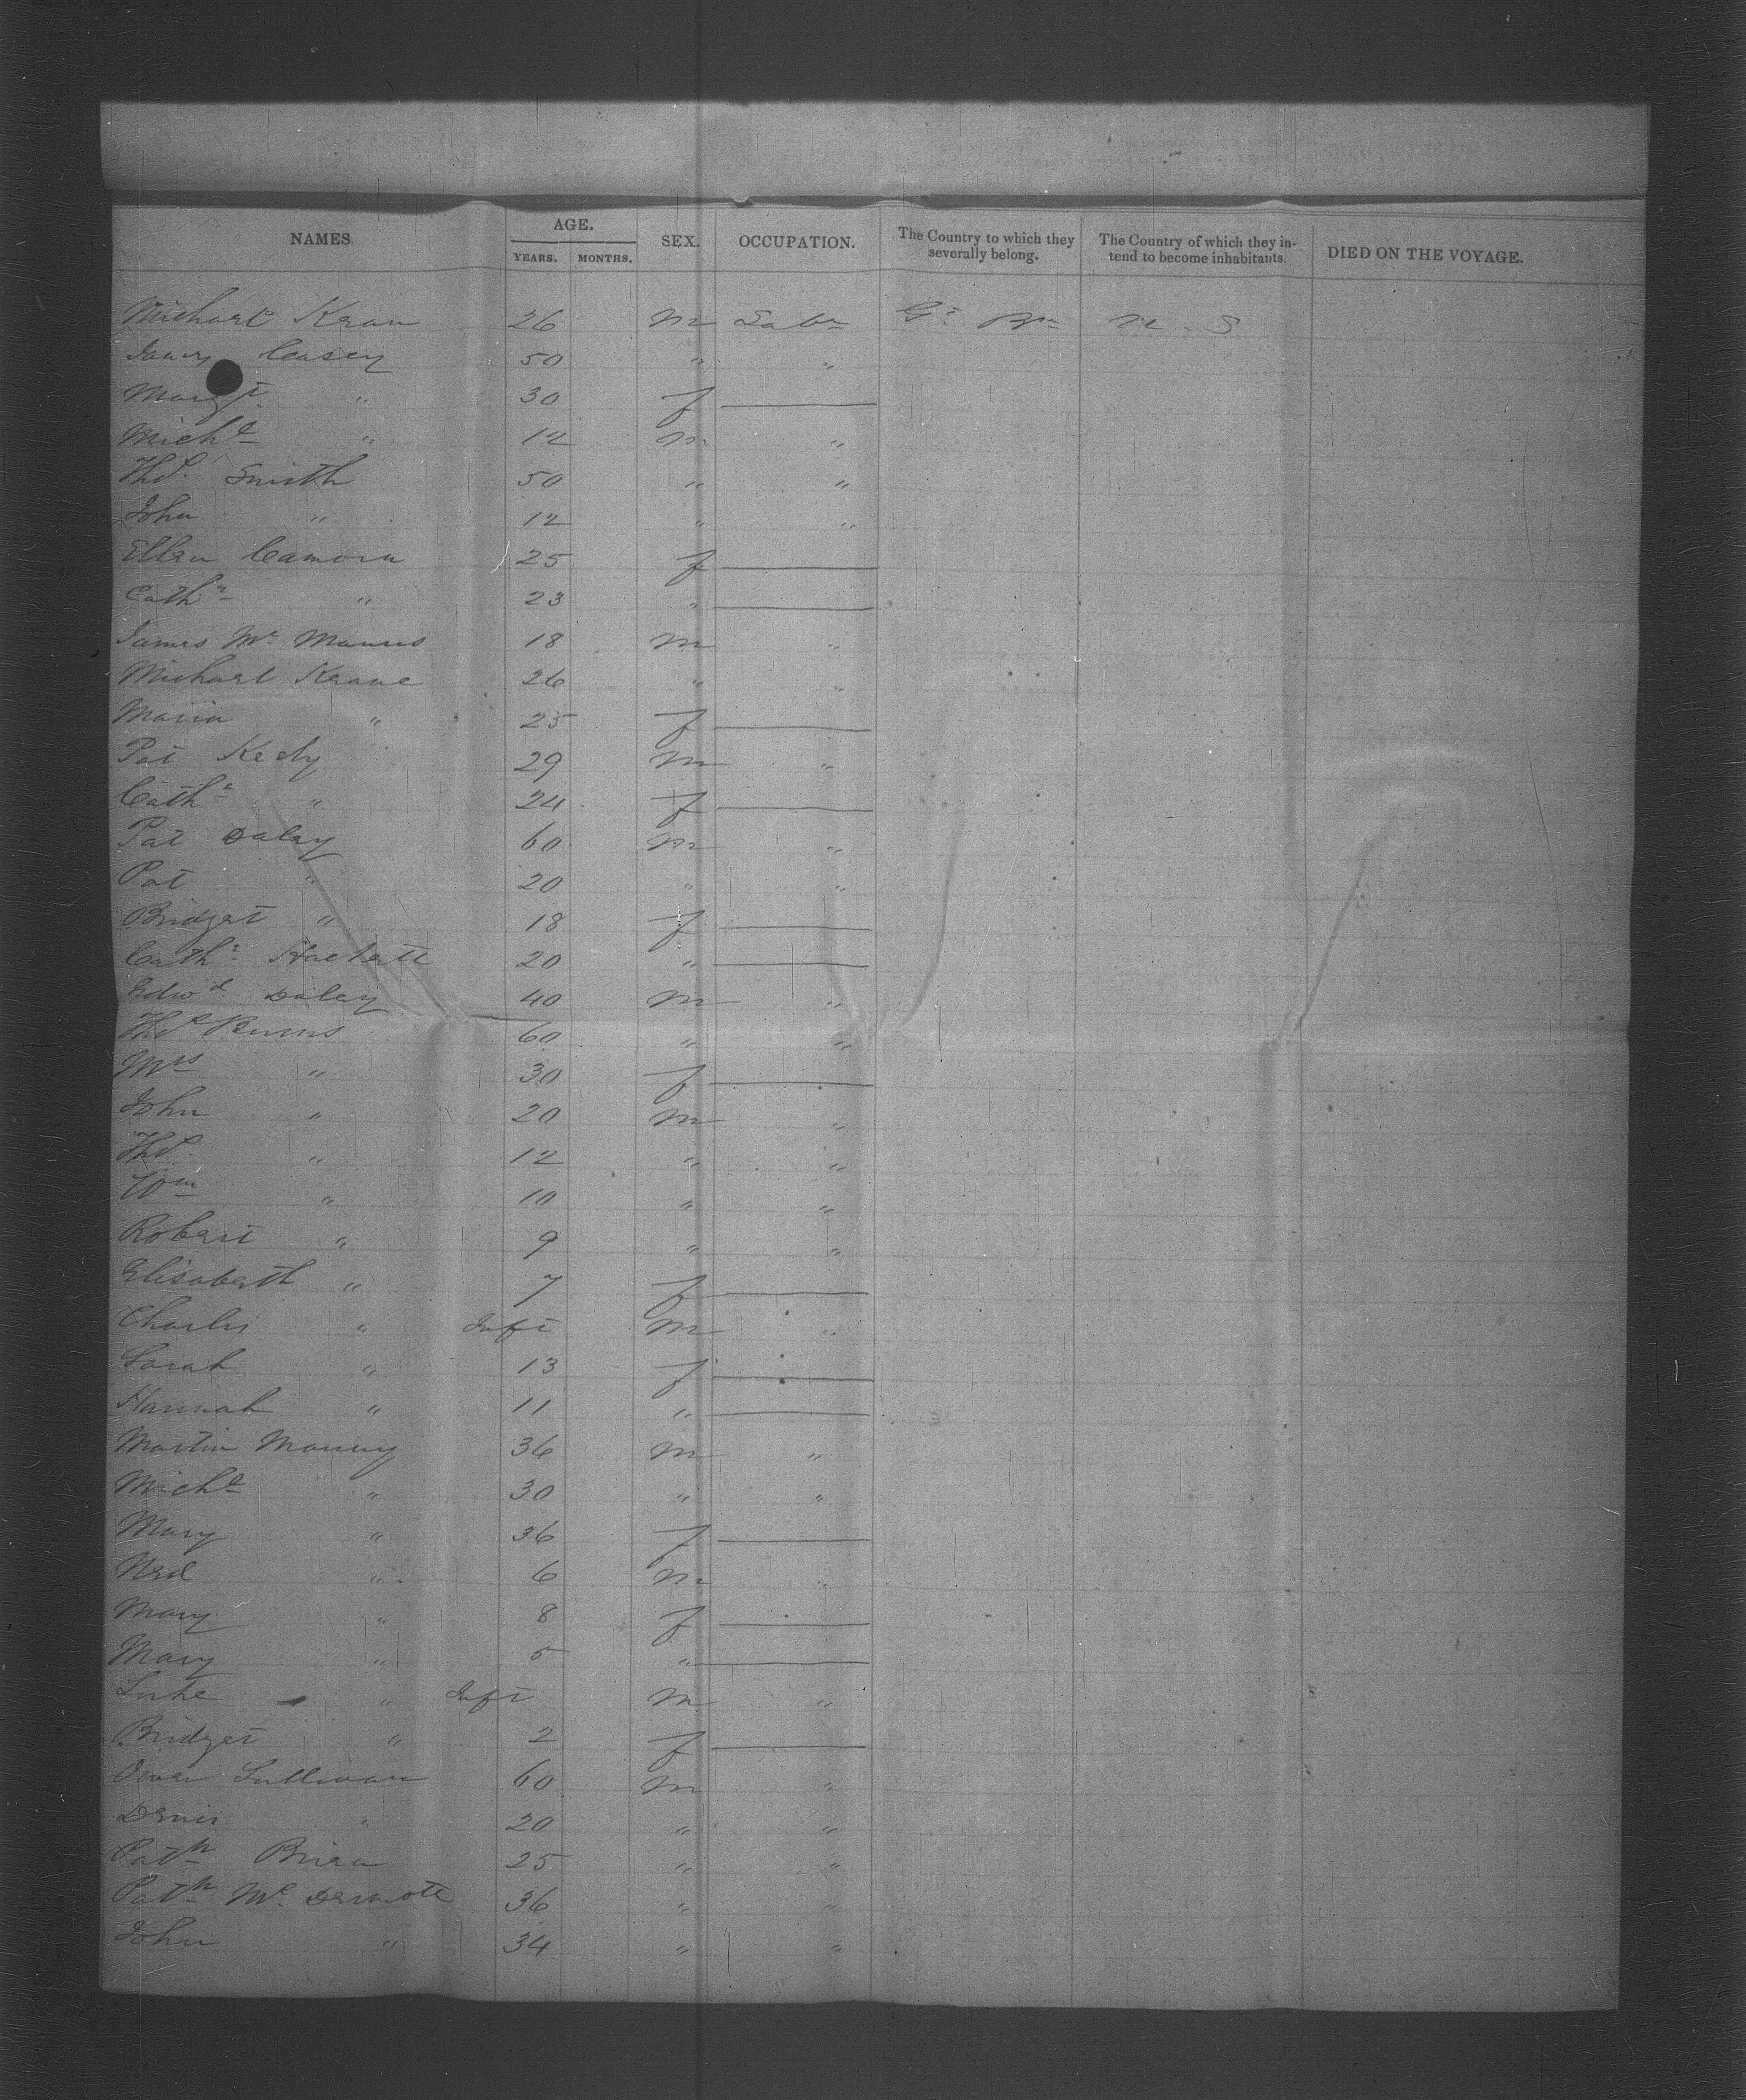 NAMES. AGE. SEX. OCCUPATION. The Country to which they severally belong. The Country of which they intend to become inhabitants. DIED ON THE VOYAGE.
YEARS. MONTHS.
Michael Kean 26 m Labr Gt Bn U.S
James Casey 50 " "
Margt " 30 f ———
Michl " 12 m "
Thos. Smith 50 " "
John " 12 " "
Ellen 25 f ———
Cathe " 23 " ———
James Mc Manus 18 m "
Michael Keane 26 " "
Maria " 25 f ———
Pat 29 m "
Cathe " 24 f ———
Pat Daley 60 m "
Pat " 20 " "
Bridget " 18 f ———
Cathe Hackett 20 " ———
Edwd Daley 40 m "
Thos Burns 60 " "
Mrs " 30 f ———
John " 20 m "
Thos. " 12 " "
Wm " 10 " "
Robert " 9 " "
Elisabeth " 7 f ———
Charles " Inft m "
Sarah " 13 f ———
Hannah " 11 " ———
Martin 36 m "
Michl " 30 " "
Mary " 36 f ———
Ned " 6 m "
Mary " 8 f ———
Mary " 5 " ———
Luke " Inft m "
Bridget " 2 f ———
Owen Sullivan 60 m "
Denis " 20 " "
Patk Brien 25 " "
Patk Mc Dermott 36 " "
John " 34 " "